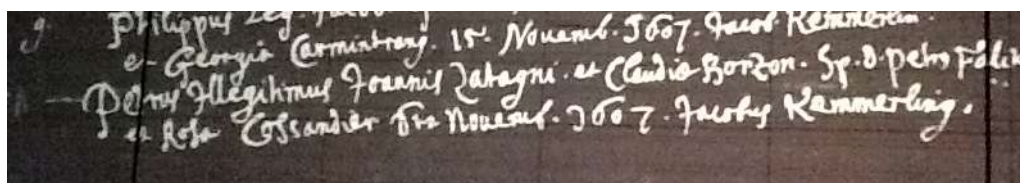 9 Philippus Leg. Jacob
et Georgia Carmintrang. 15. Nouemb. 1607. Jacob. Kemmerlin.
Petrus Illegitimus Joannis Zatagni. et Claudia Borzon. Sp. D. Petro
et Rosa Cossandier 6ta Nouemb. 1607. Jacobus Kemmerling.